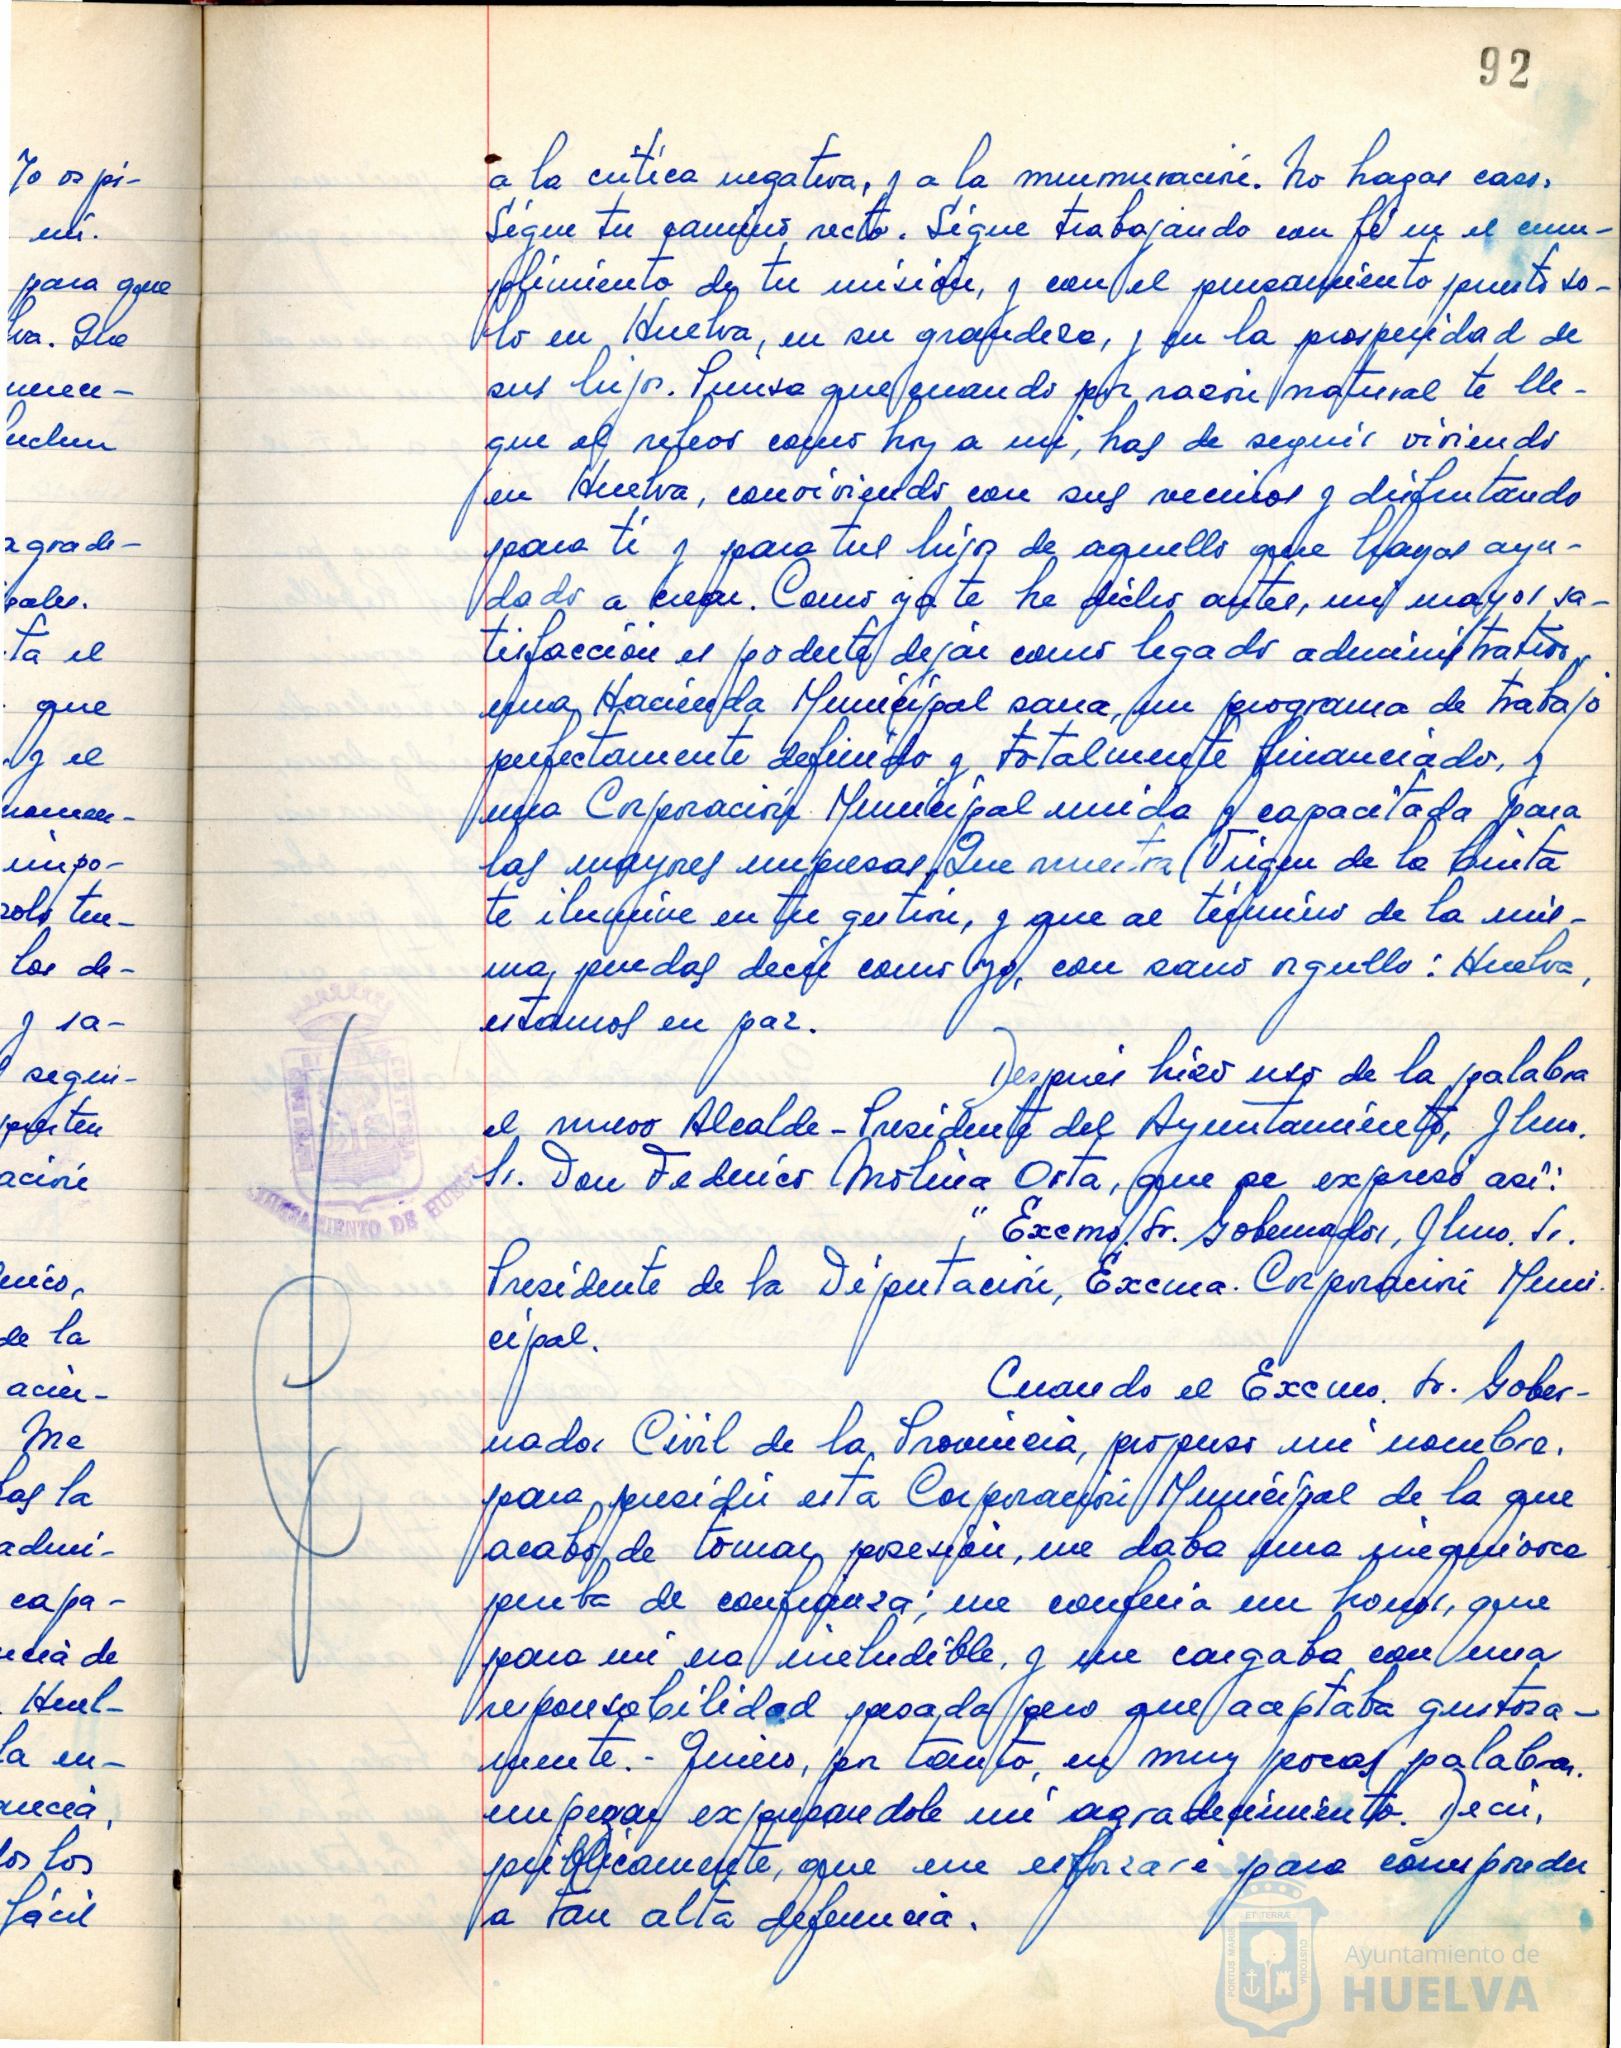 92
a la crítica negativa, y a la murmuración. No hagas caso.
Sigue tu camino recto. Sigue trabajando con fé en el cum-
plimiento de tu misión, y con el pensamiento puesto so-
lo en Huelva, en su grandeza, y en la prosperidad de
sus hijos. Piensa que cuando por razón natural te lle-
gue el relevo como hoy a mí, has de seguir viviendo
en Huelva, conviviendo con sus vecinos y disfrutando
para tí y para tus hijos de aquello que hayas ayu-
dado a crear. Como ya te he dicho antes, mi mayor sa-
tisfacción es poderte dejar como legado administrativo,
una Hacienda Municipal sana, un programa de trabajo
perfectamente definido y totalmente financiado, y
una Corporación Municipal unida y capacitada para
las mayores empresas. Que nuestra Virgen de la Cinta
te ilumine en tu gestión, y que al término de la mis-
ma, puedas decir como yo, con sano orgullo: Huelva,
estamos en paz.
Después hizo uso de la palabra
el nuevo Alcalde-Presidente del Ayuntamiento, Ilmo.
Sr. Don Federico Molina Orta, que se expresó así:
" Excmo. Sr. Gobernador, Ilmo. Sr.
Presidente de la Diputación, Excma. Corporación Muni-
cipal.
Cuando el Excmo. Sr. Gober-
nador Civil de la Provincia, propuso mi nombre,
para presidir esta Corporación Municipal de la que
acabo de tomar posesión, me daba una inequívoca
prueba de confianza; me confería un honor, que
para mí era ineludible, y me cargaba con una
responsabilidad pesada pero que aceptaba gustosa-
mente.- Quiero, por tanto, en muy pocas palabras,
empezar expresandole mi agradecimiento. Decir,
públicamente, que me esforzaré para corresponder
a tan alta deferencia.
Yo os pi-
mí.
para que
lva. Que
merece-
luchen
agrade-
pales.
ta el
que
y el
nomen-
impo-
solo ten-
los de-
y sa-
segui-
presten
ación
mico,
de la
acier-
Me
las la
admi-
capa-
ncia de
Huel-
la en-
ancia,
los los
fácil
AYUNTAMIENTO DE HUELVA
PORTUS MARIS
ET TERRÆ
CUSTODIA
Ayuntamiento de
HUELVA